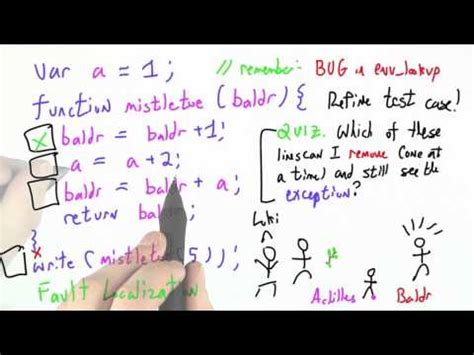 var a = 1;
// remember: BUG in env_lookup
function mistletoe (baldr) {
Refine test case!
X baldr = baldr +1;
a = a + 2;
baldr = baldr + a;
return bal
}
x
write ( mistleto (5) );
Fault Localization
QUIZ. Which of these
lines can I remove (one at
a time) and still see the
exception?
Loki
Achilles
Baldr